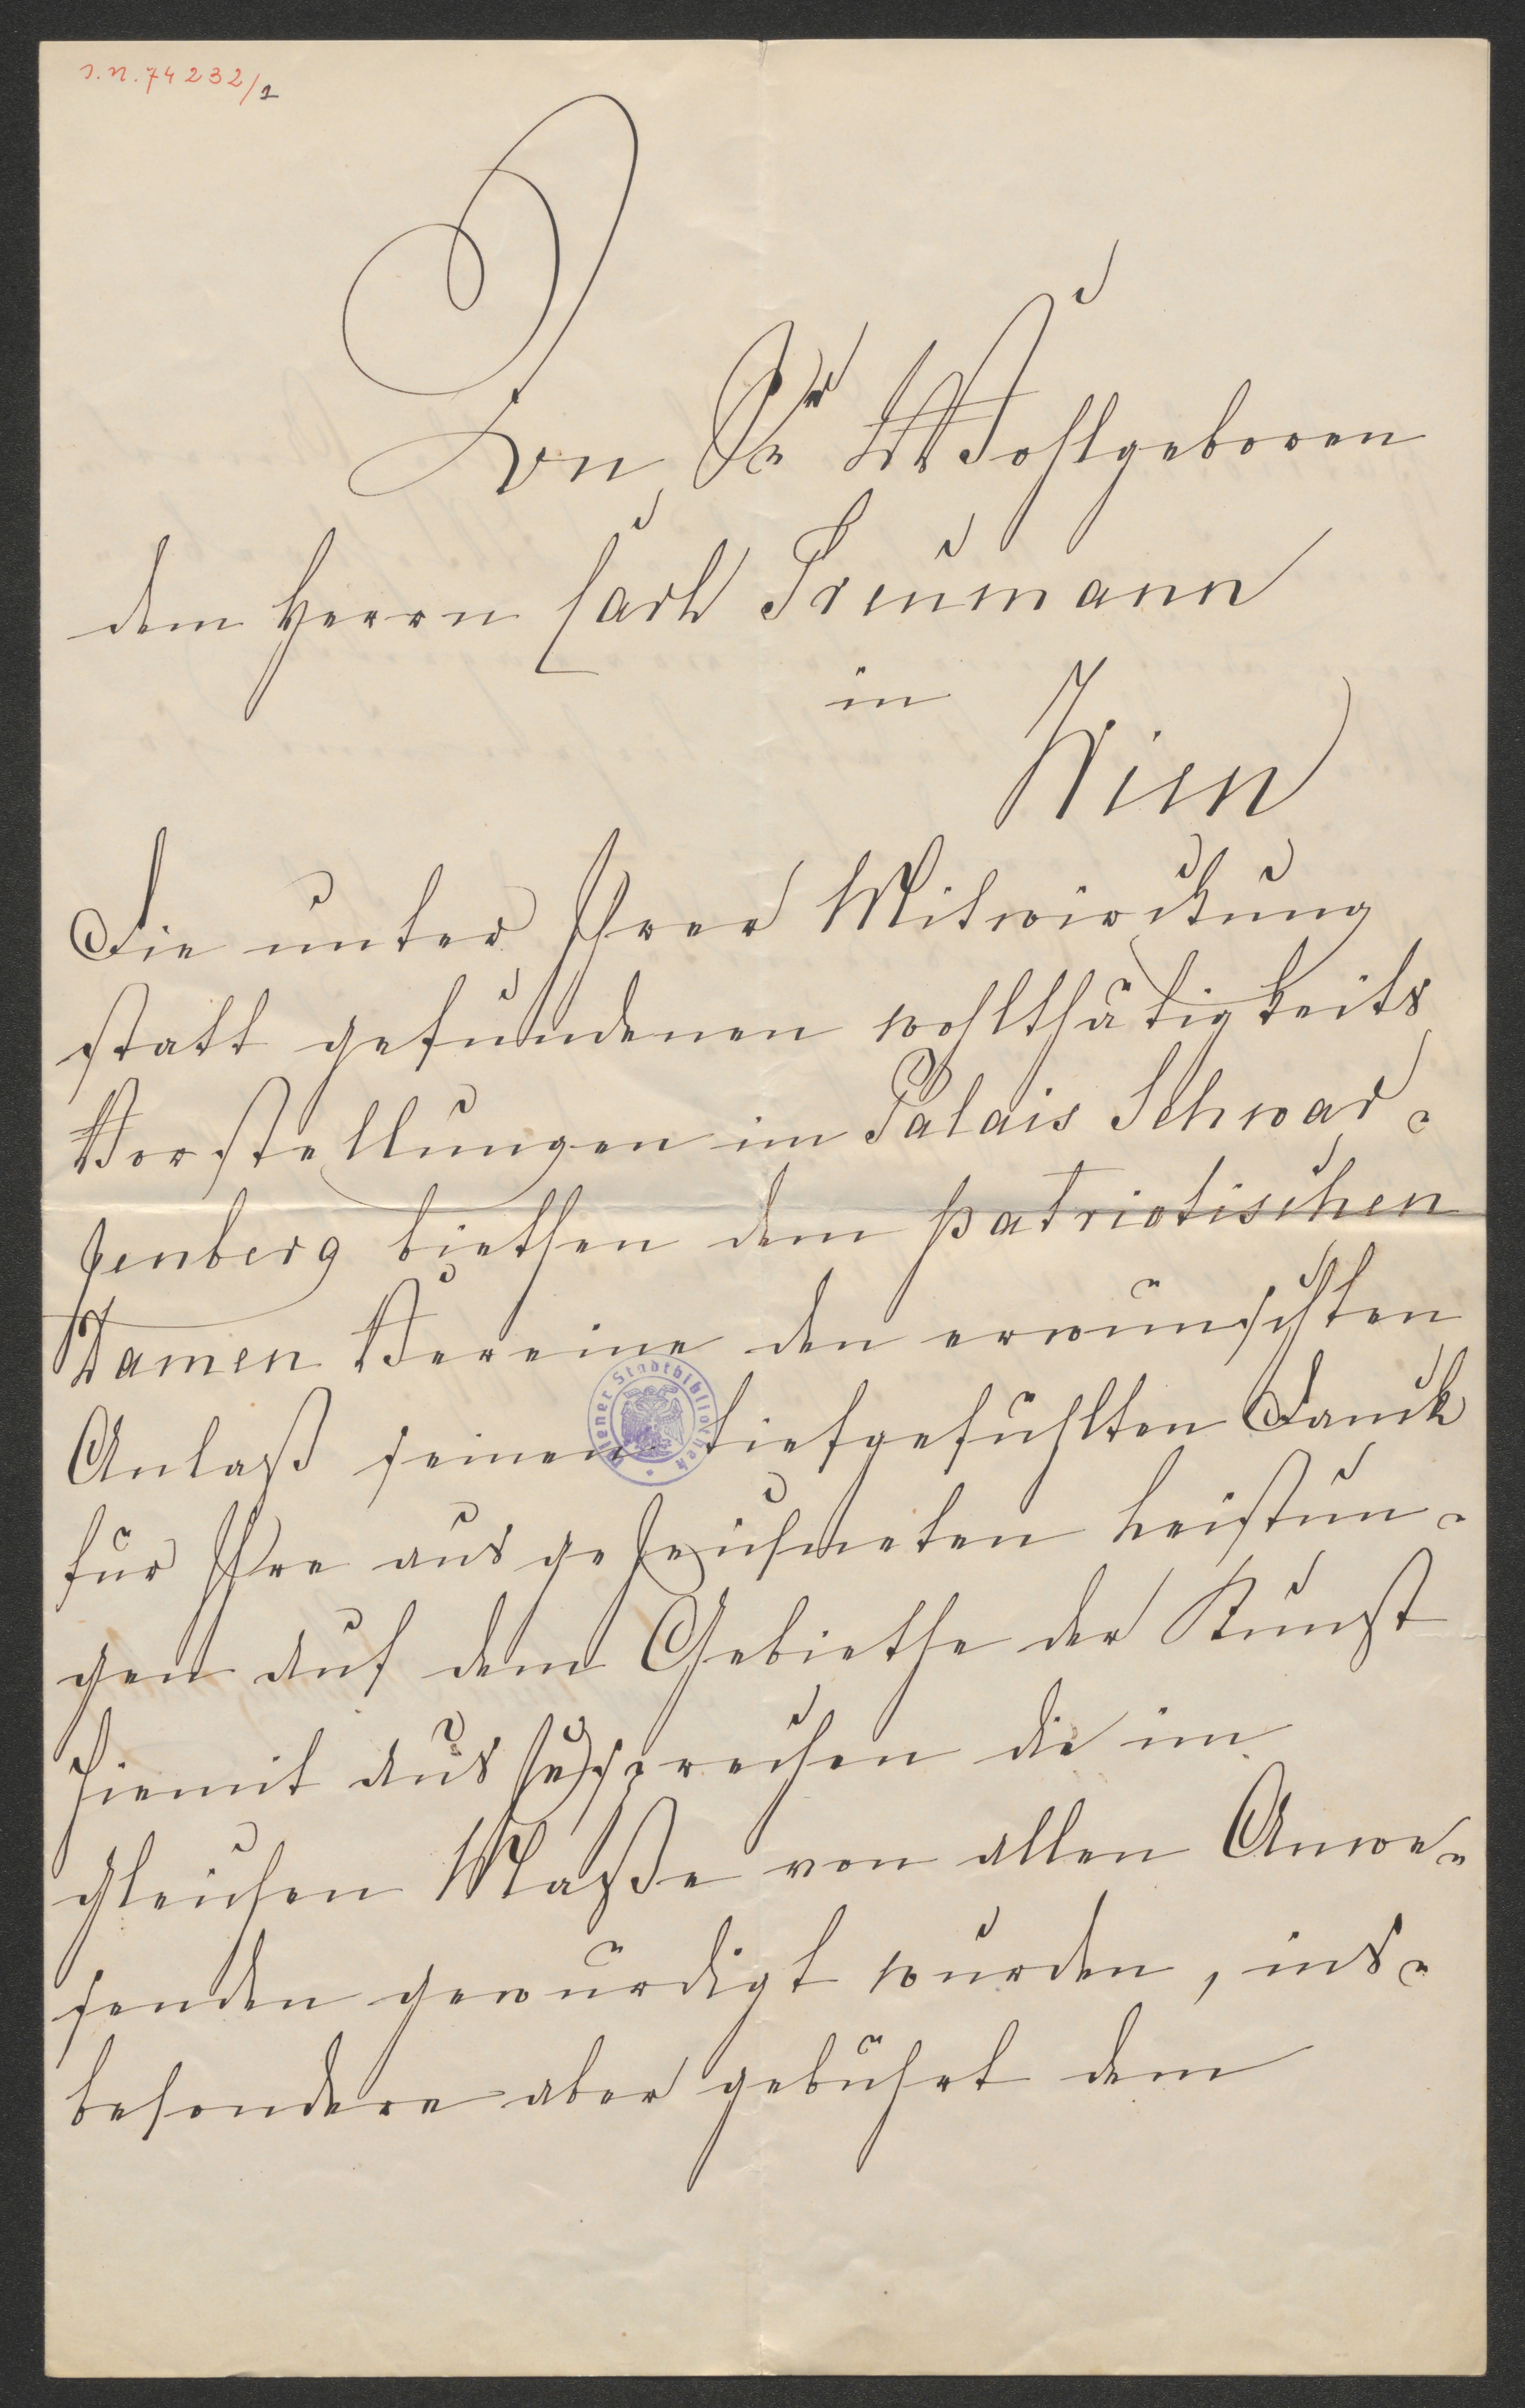 J.N. 74232/1
An Sr Wohlgeboren
dem Herrn Carl Treumann
in
Wien
Die unter Ihrer Mitwirckung
statt gefundenen wohlthätigkeits
Vorstellungen im Palais Schwar-
zenberg biethen dem patriotischen
Damen Vereine den erwünschten
Anlaß seinen tiefgefühlten Danck
für Ihre ausgezeichneten Leistun-
gen auf dem Gebiethe der Kunst
hiemit auszusprechen die im
gleichen Maße von allen Anwe-
senden gewürdigt wurden, ins-
besondere aber gebührt dem
Wiener Stadtbibliothek